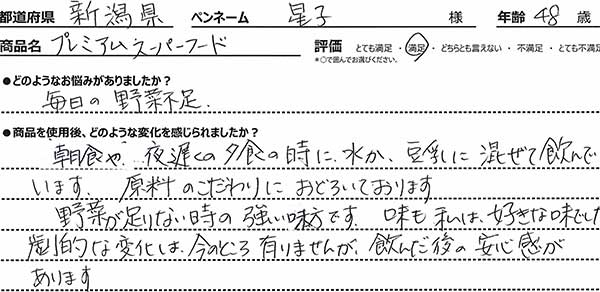 都道府県 新潟県 ペンネーム 星子 様 年齢 48 歳
商品名 プレミアムスーパーフード 評価 とても満足・満足・どちらとも言えない・不満足・とても不満足
*○で囲んでお選びください。
●どのようなお悩みがありましたか?
毎日の野菜不足.
●商品を使用後、どのような変化を感じられましたか?
朝食や、夜遅くの夕食の時に、水か、豆乳に混ぜて飲んで
います、原料のこだわりにおどろいております
野菜が足りない時の強い味方です。味も私は、好きな味でした
劇的な変化は、今のところ有りませんが、飲んだ後の安心感が
あります